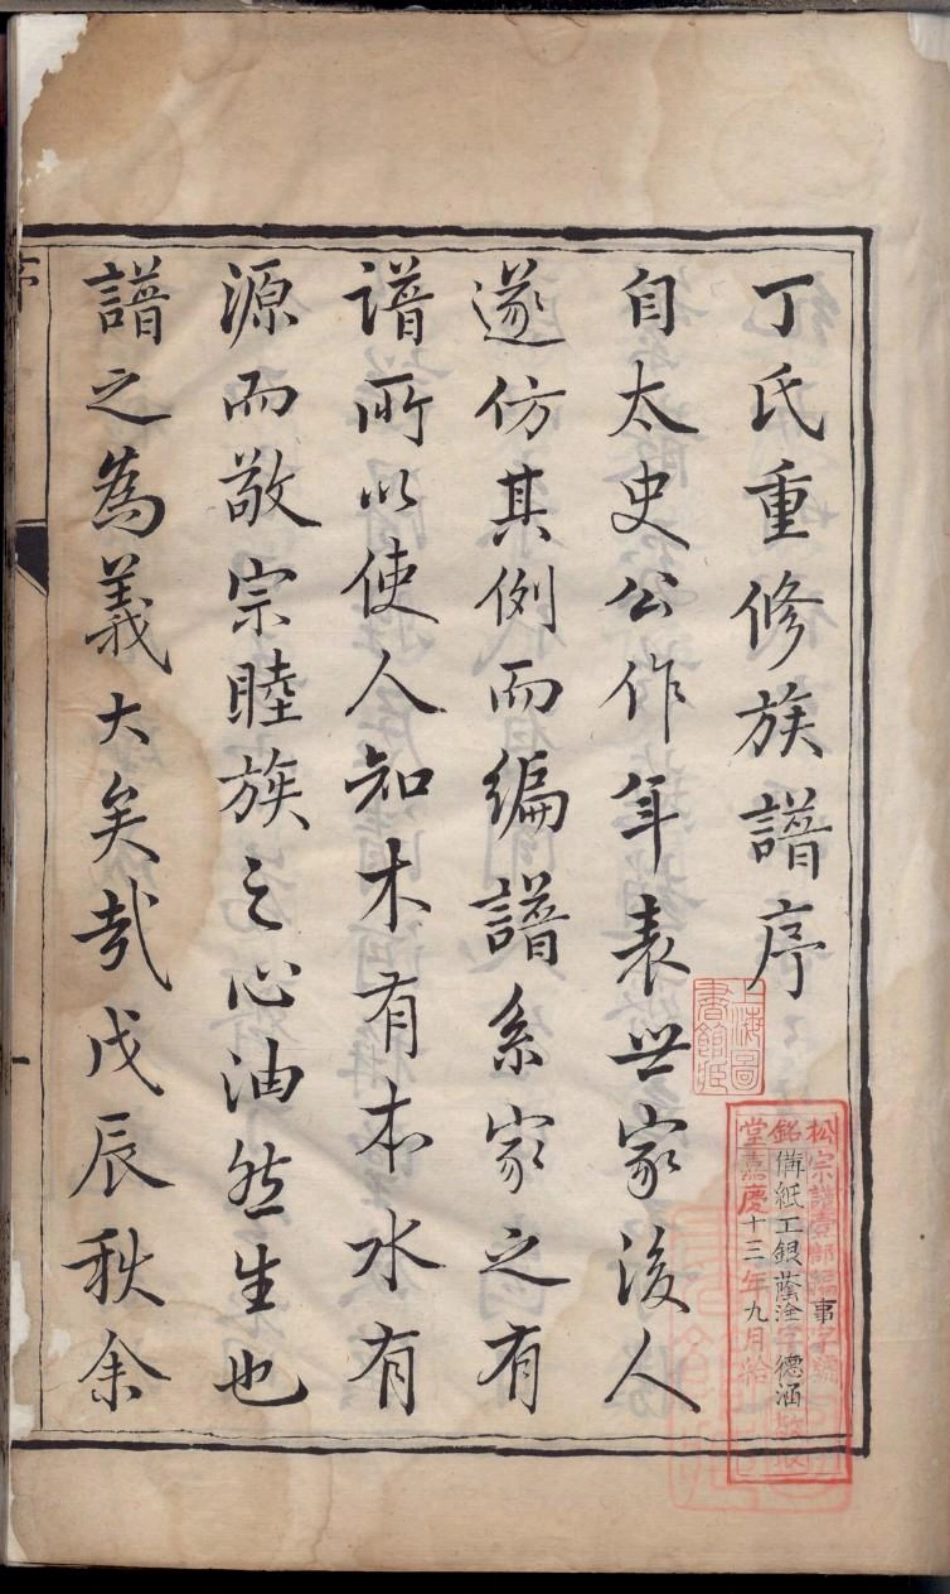 丁氏重修族譜序
自太史公作年表世家後人
遂仿其例而編譜系家之有
譜所以使人知木有本水有
源而敬宗睦族之心油然生也
譜之為義大矣哉戊辰秋余
序
一
上海圖
書館藏
松
宗譜
事字號
銘
備紙工銀蔭淦
德涵
堂嘉慶十三年九月